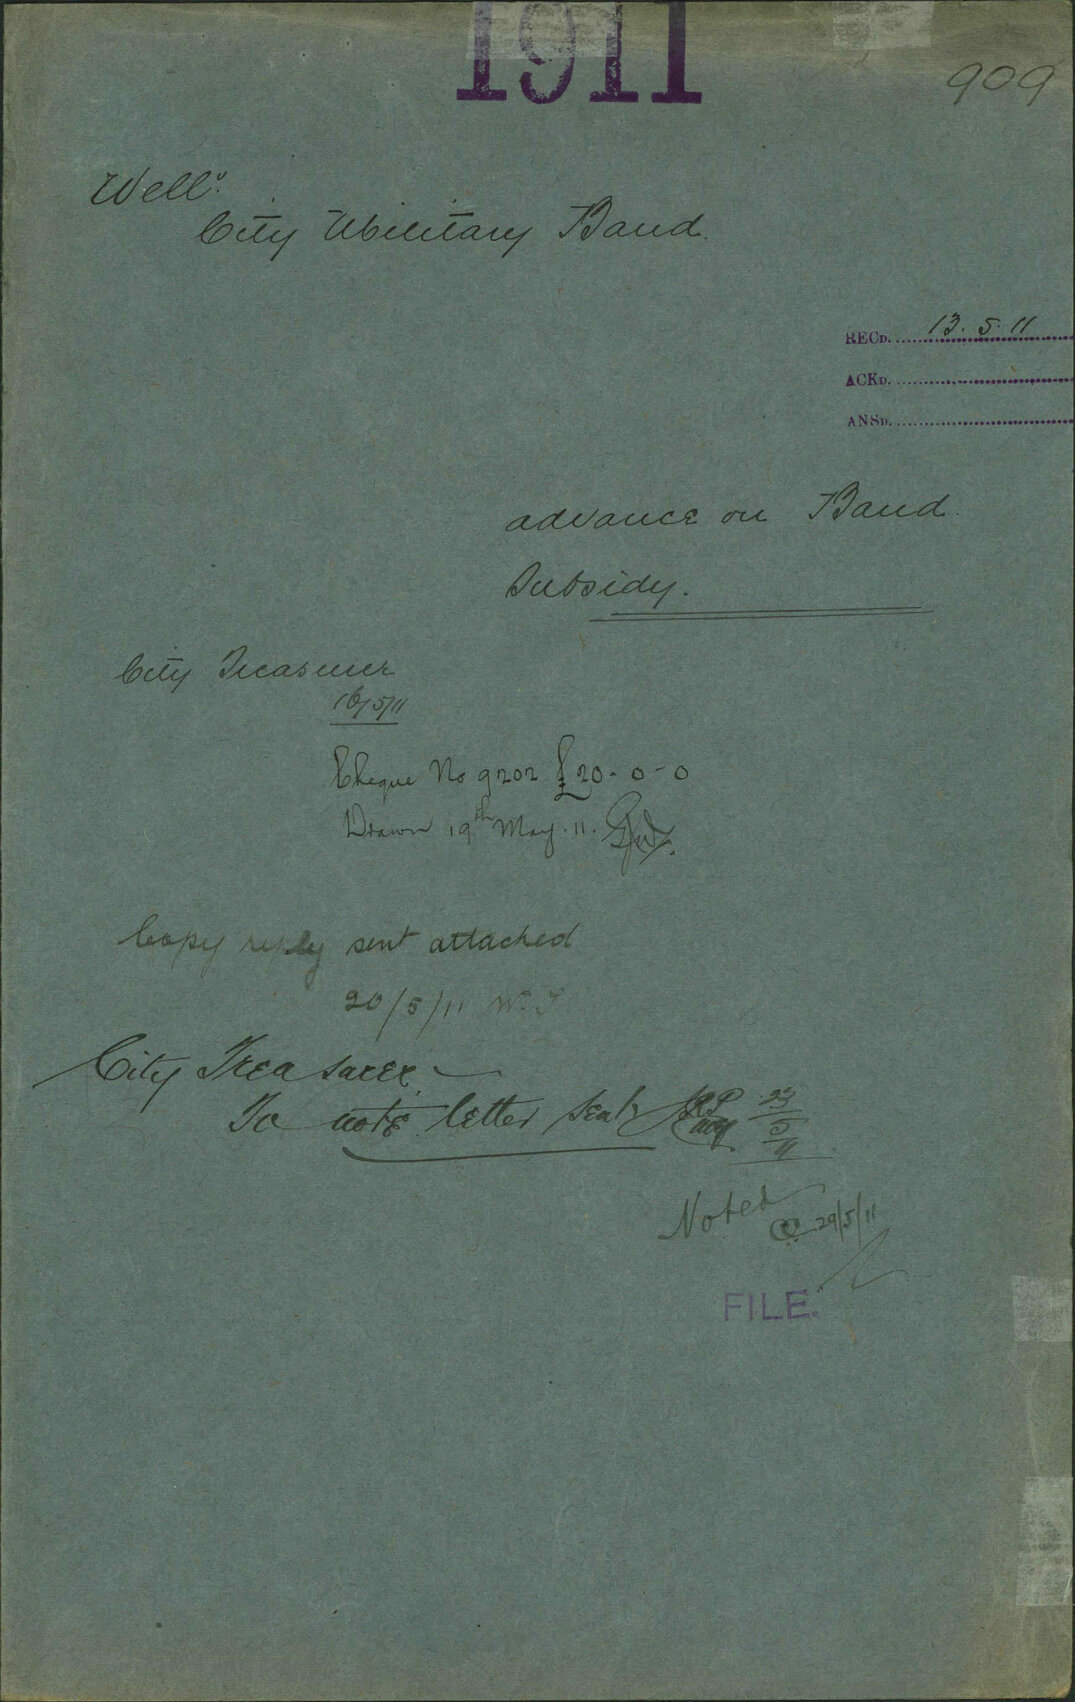 1911
909
Well:
City Military Band.
RECD. 13. 5. 11
ACKD.
ANSD.
advance on Band
Subsidy.
City Treasurer
16/5/11
Cheque No 9202 £20-0-0
Drawn 19th May. 11.
Copy reply sent attached
20/5/11 W.
City Treasurer
To note letter sent
23/5/11
Noted
29/5/11
FILE.